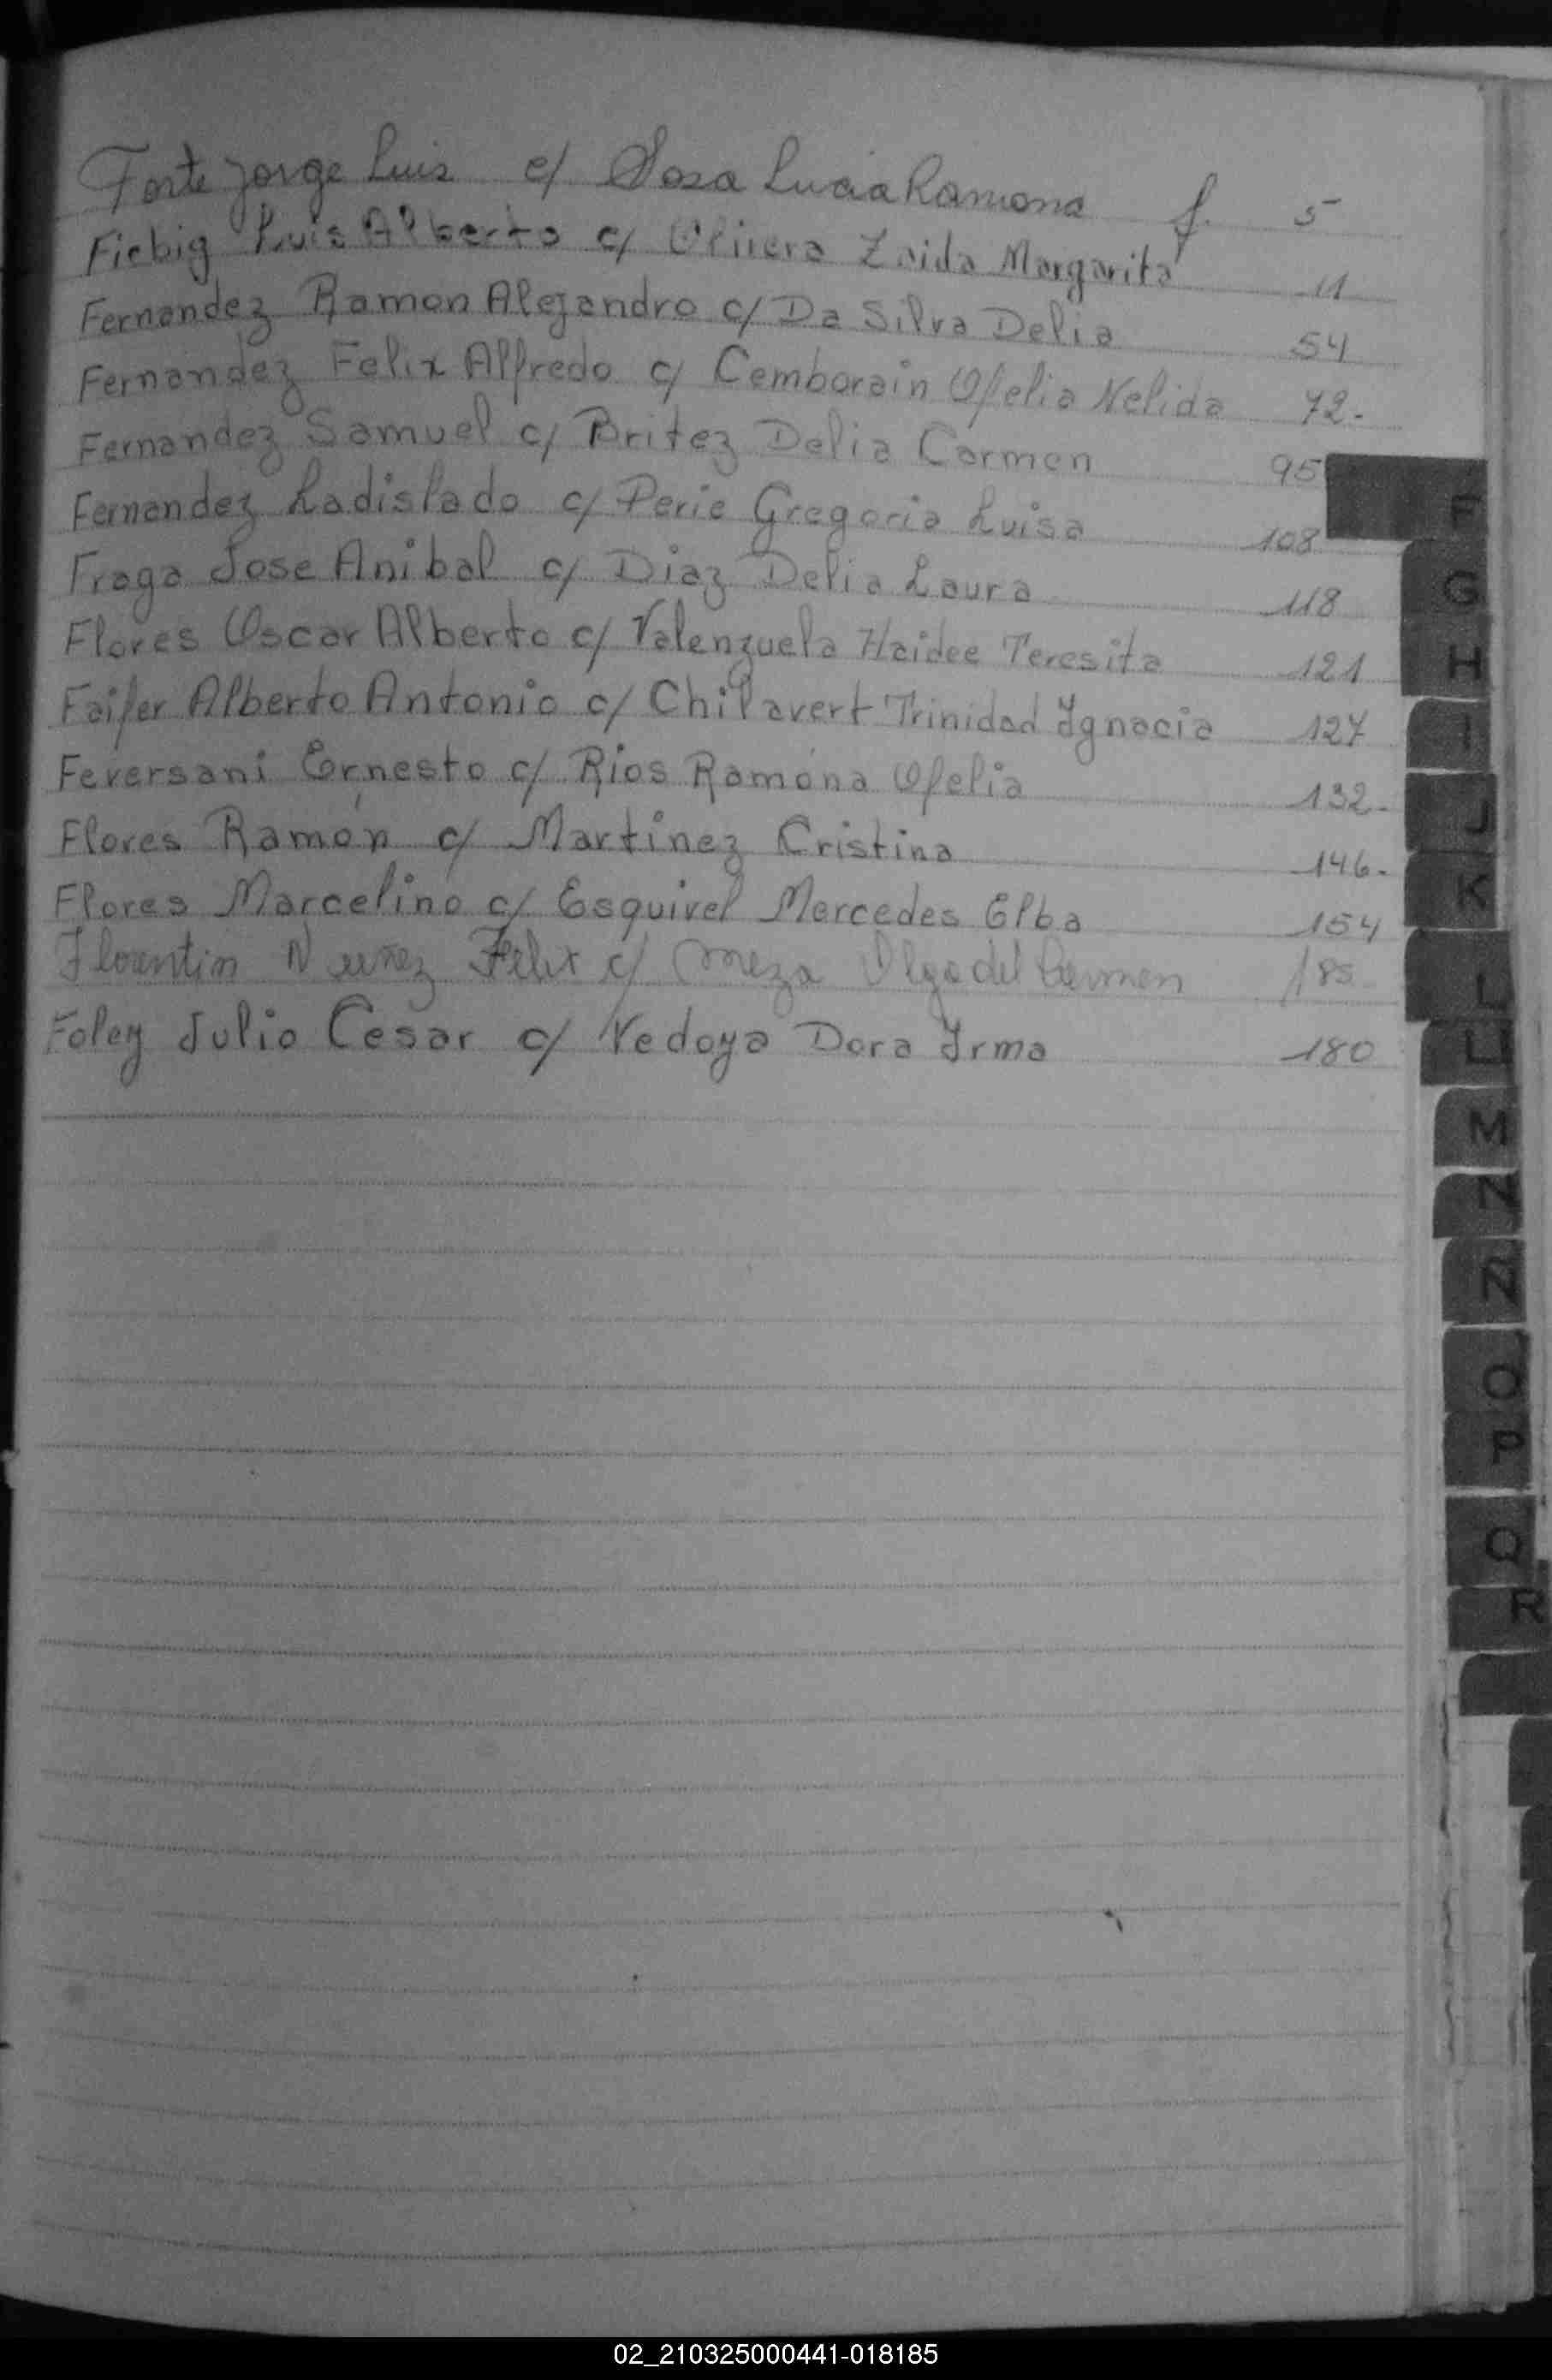 Forte Jorge Luis c/ Sosa Lucia Ramona f. 5
Fiebig Luis Alberto c/ Olivera Zaida Margarita 11
Fernandez Ramon Alejandro c/ Da Silva Delia 54
Fernandez Felix Alfredo c/ Cemborain Ofelia Nelida 72.
Fernandez Samuel c/ Britez Delia Carmen 95
Fernandez Ladislado c/ Perie Gregoria Luisa 108
Fraga Jose Anibal c/ Diaz Delia Laura 118
Flores Oscar Alberto c/ Valenzuela Haidee Teresita 121
Faifer Alberto Antonio c/ Chilavert Trinidad Ignacia 127
Feversani Ernesto c/ Rios Ramona Ofelia 132.
Flores Ramón c/ Martinez Cristina 146.
Flores Marcelino c/ Esquivel Mercedes Elba 154
Florentin Nuñez Felix c/ Meza Olga del Carmen 185
Foley Julio Cesar c/ Vedoya Dora Irma 180
F
G
H
I
J
K
L
LL
M
N
Ñ
O
P
Q
R
02_210325000441-018185